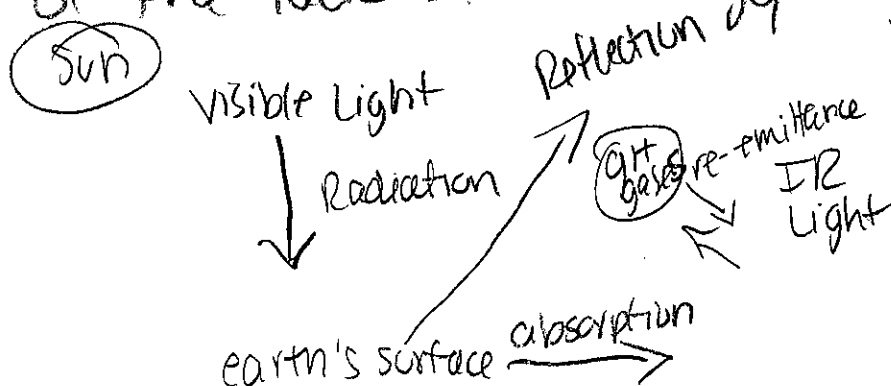 Sun
Visible Light
Radiation
Reflection
GH gases
re-emittance
IR Light
earth's surface
absorption